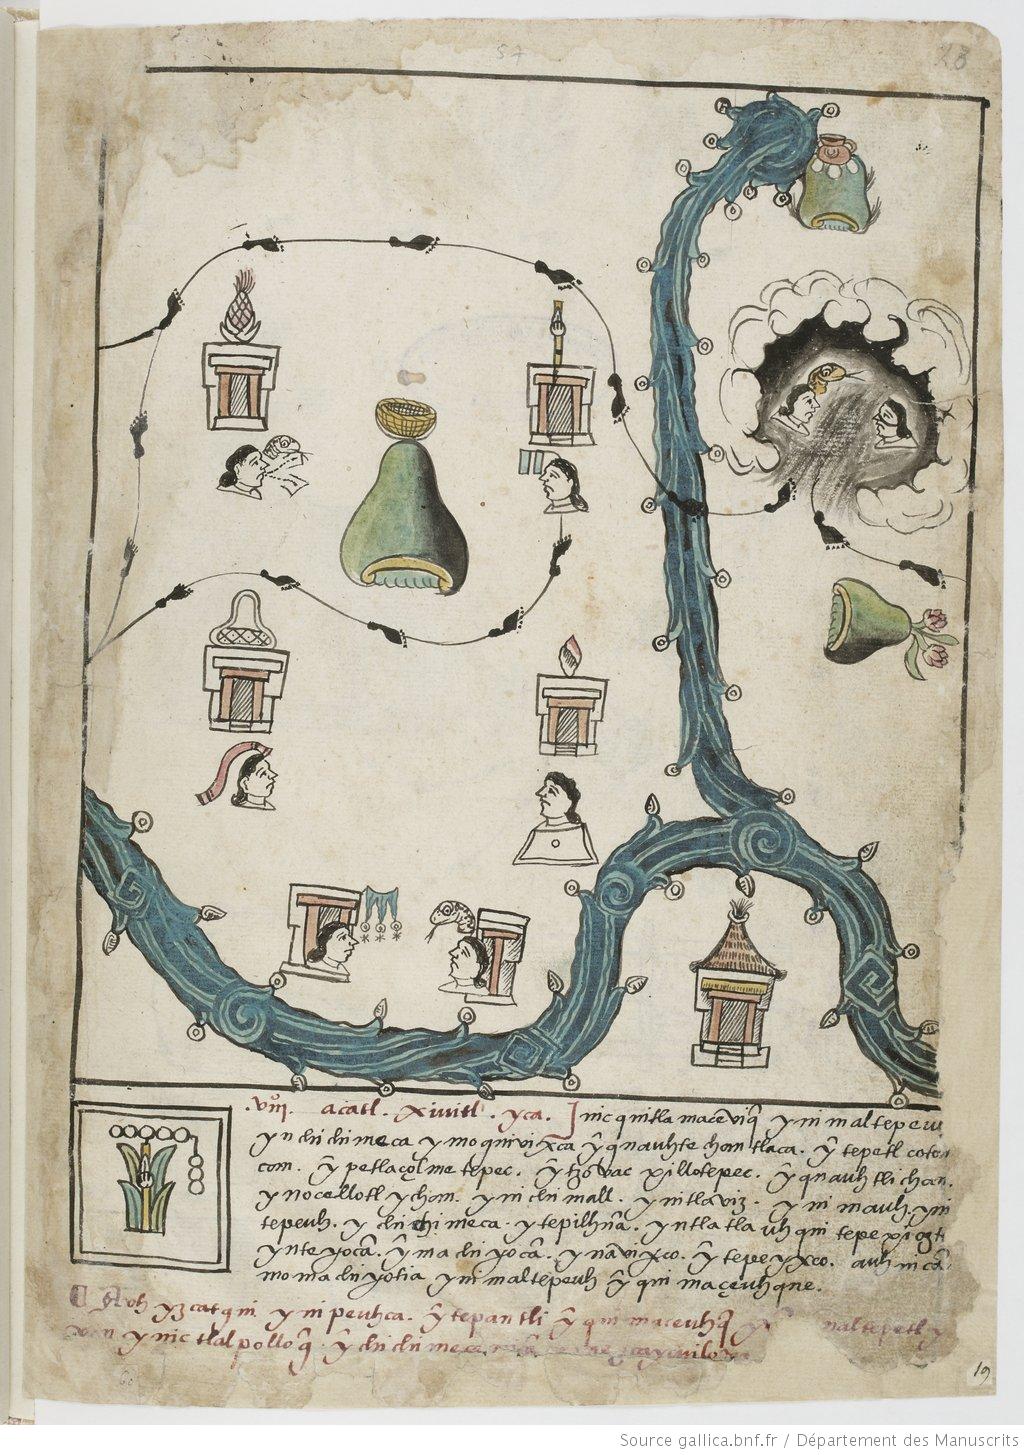 57
.viij. acatl. xiuitl. yca. Jnic quitlamaceviq̃ yn imaltepeu
yn chichimeca ymoquivixca ỹ qnauhtechantlaca. ỹ tepetl coto
com. ỹ petlaçolmetepec. ỹ tzovac xillotepec. ỹ qnauhtli chan.
ynocellotl ychan. yni chimall. ynitlaviz. yni mauh. yni
tepeuh. y chichimeca. ytepilhuã. yntlatlauhqui tepexioztl
ynteyocã. ỹ machiyocã. ynavixco. ỹ tepeyxco. auh in cã
momachiyotia ynimaltepeuh ỹ qui maçeuhqne.
Auh yzcatqui yni peuhca. ỹ tepantli ỹ qui maceuhq̃ naltepetl y
van ynic tlalpolloq̃. ỹ chichimeca
19
Source gallica.bnf.fr / Département des Manuscrits